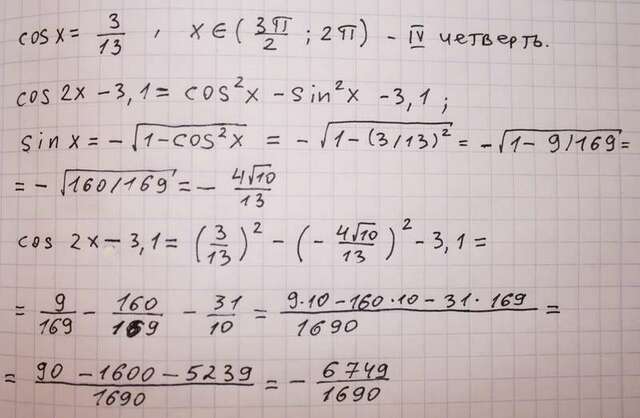 cos x = 3/13 , x ∈ (3π/2 ; 2π) - IV четверть.
cos 2x - 3,1 = cos²x - sin²x - 3,1 ;
sin x = -√(1-cos²x) = -√(1-(3/13)²) = -√(1-9/169) =
= -√(160/169) = - 4√10/13
cos 2x - 3,1 = (3/13)² - (- 4√10/13)² - 3,1 =
= 9/169 - 160/169 - 31/10 = (9·10 - 160·10 - 31·169)/1690 =
= (90 - 1600 - 5239)/1690 = - 6749/1690